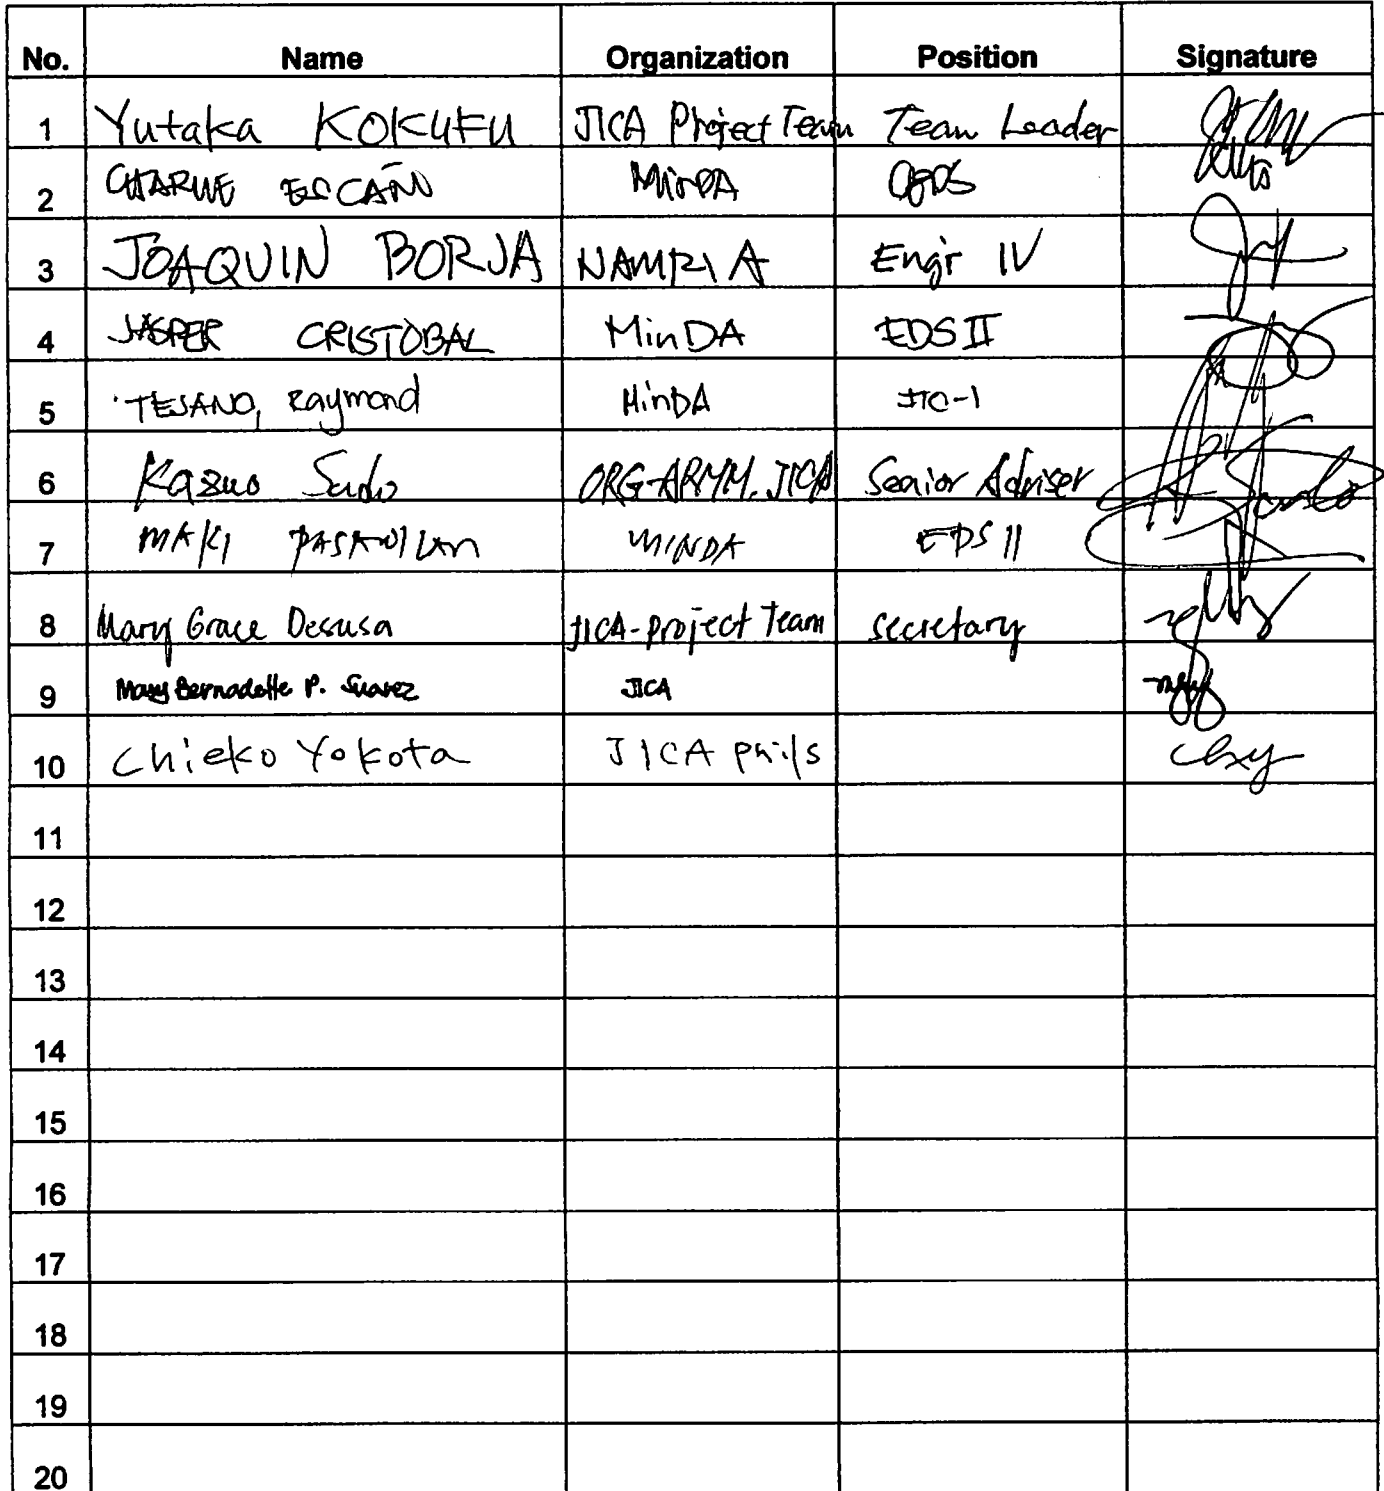 No. Name Organization Position Signature
1 Yutaka KOKUFU JICA Project Team Team Leader
2 CHARLIE ESCAÑO MinDA
3 JOAQUIN BORJA NAMRIA Engr IV
4 JASPER CRISTOBAL MinDA EDS II
5 TEJANO, Raymond MinDA
6 Kazuo Sudo ORG-ARMM. JICA Senior Adviser
7 MAKI MINDA EDS II
8 Mary Grace Desusa JICA-project Team secretary
9 Mary Bernadette P. Suarez JICA
10 Chieko Yokota JICA phils
11
12
13
14
15
16
17
18
19
20